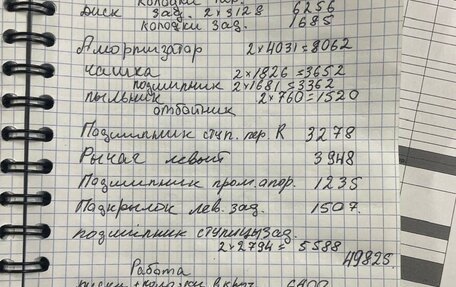 колодки пер.
Диск зад. 2×3128 6256
колодки зад. 1685
Амортизатор 2×4031=8062
чашка 2×1826=3652
подшипник 2×1681=3362
пыльник 2×760=1520
отбойник
Подшипник ступ. пер. R 3278
Рычаг левый 3948
Подшипник пром. опор. 1235
Падкрылок лев. зад. 1507.
подшипник ступицы зад.
2×2794=5588
49825.
Работа
6400